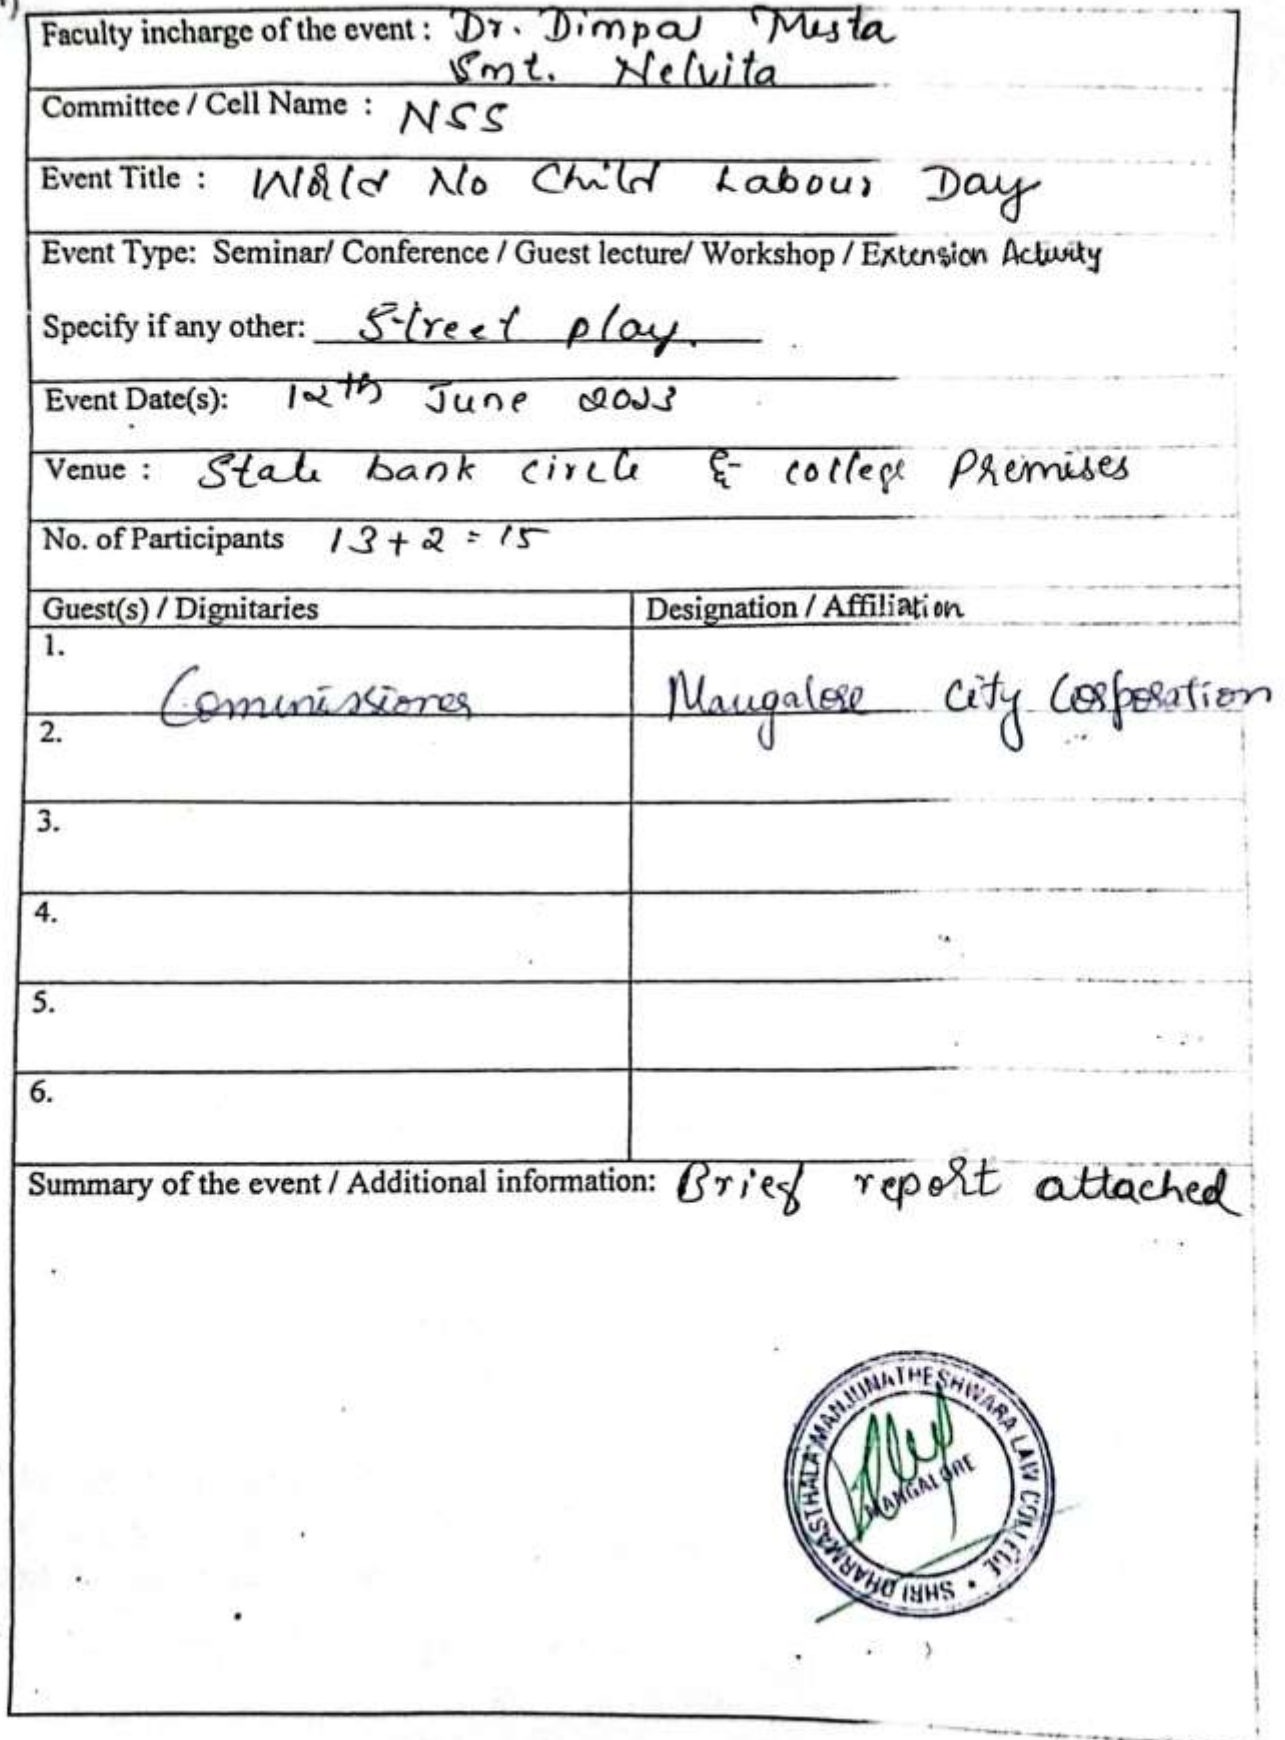 Faculty incharge of the event : Dr. Dimpal Mesta
Smt. Nelvita
Committee / Cell Name : NSS
Event Title : World No Child Labour Day
Event Type: Seminar/ Conference / Guest lecture/ Workshop / Extension Activity
Specify if any other: Street play.
Event Date(s): 12th June 2023
Venue : State bank circle & college Premises
No. of Participants 13+2 = 15
Guest(s) / Dignitaries Designation / Affiliation
1. Commissioner Mangalore City Corporation
2.
3.
4.
5.
6.
Summary of the event / Additional information: Brief report attached
SHRI DHARMASTHALA MANJUNATHESHWARA LAW COLLEGE •
MANGALORE